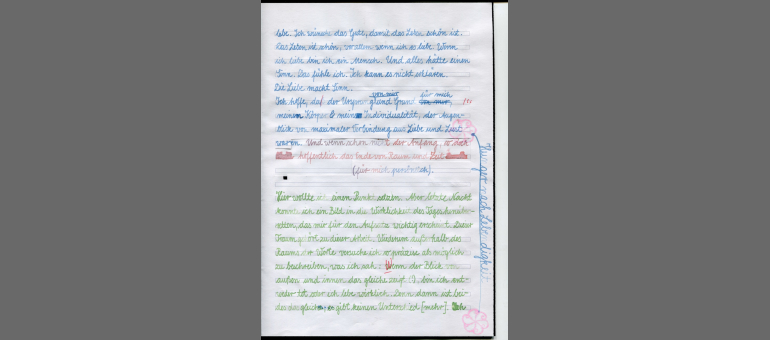 lebe. Ich erinnere das Gute, damit das Leben schön ist.
Das Leben ist schön, vor allem wenn ich es liebe. Wenn
ich liebe bin ich ein Mensch. Und alles hätte einen
Sinn. Das fühle ich. Ich kann es nicht erklären.
Die Liebe macht Sinn.
von mir für mich
Ich hoffe, daß der Ursprung, Grund
meinen Körper & meine Individualität, der Augen-
blick von maximaler Verbindung aus Liebe und Lust
waren. Und wenn schon nicht der Anfang, so doch
hoffentlich das Ende von Raum und Zeit
(für mich persönlich).
Hier wollte ich einen Punkt setzen. Aber letzte Nacht
konnte ich ein Bild in die Wirklichkeit des Tages hinein-
retten, das mir für den Aufsatz wichtig erscheint. Dieser
Traum gehört zu dieser Arbeit. Wiederum außerhalb des
Raums der Worte versuche ich so präzise als möglich
zu beschreiben, was ich sah. Wenn der Blick von
außen und innen das gleiche zeigt (), bin ich ent-
weder tot oder ich lebe wirklich. Denn dann ist bei-
des das gleiche, es gibt keinen Unterschied [mehr]. Ich